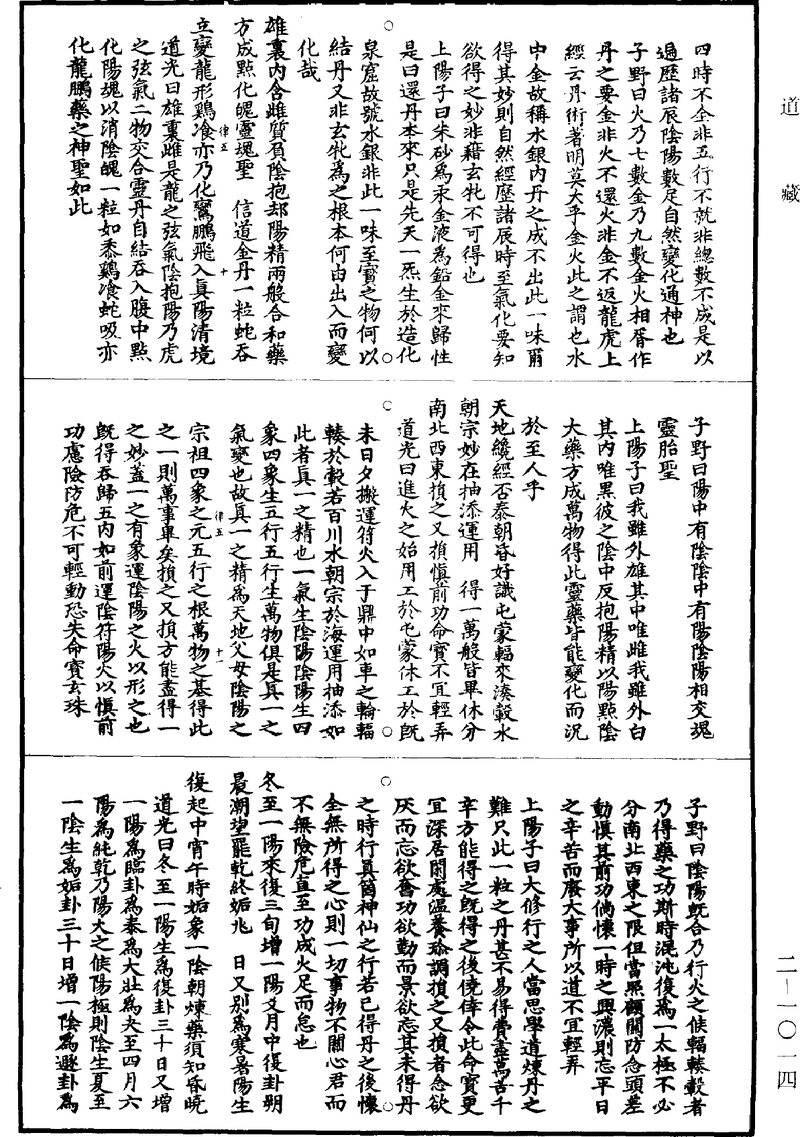 道藏
四時不全非五行不就非總數不成是以
遍歷諸辰陰陽數足自然變化通神也
子野曰火乃七數金乃九數金火相胥作
丹之要金非火不還火非金不返龍虎上
經云丹術著明莫大乎金火此之謂也水
中金故稱水銀内丹之成不出此一味爾
得其妙則自然經歷諸辰時至氣化要知
欲得之妙非藉玄牝不可得也
上陽子曰朱砂爲汞金液爲鉛金來歸性
是曰還丹本來只是先天一炁生於造化
泉窟故號水銀非此一味至寶之物何以
結丹又非玄牝爲之根本何由出入而變
化哉
雄裏内含雌質負陰抱却陽精兩般合和藥
方成點化魄靈魂聖　信道金丹一粒蛇吞
立變龍形鷄飡亦乃化鸞鵬飛入真陽清境
道光曰雄裏雌是龍之弦氣陰抱陽乃虎
之弦氣二物交合靈丹自結吞入腹中點
化陽魂以消陰魄一粒如黍鷄飡蛇吸亦
化龍鵬藥之神聖如此
律五
十
子野曰陽中有陰陰中有陽陰陽相交魂
靈胎聖
上陽子曰我雖外雄其中唯雌我雖外白
其内唯黑彼之陰中反抱陽精以陽點陰
大藥方成萬物得此靈藥皆能變化而況
於至人乎
天地纔經否泰朝昏好識屯蒙輻來湊轂水
朝宗妙在抽添運用　得一萬般皆畢休分
南北西東損之又損慎前功命寶不宜輕弄
道光曰進火之始用工於屯蒙休工於既
未日夕搬運符火入于鼎中如車之輪輻
輳於轂若百川水朝宗於海運用抽添如
此者真一之精也一氣生陰陽陰陽生四
象四象生五行五行生萬物俱是真一之
氣變也故真一之精爲天地父母陰陽之
宗祖四象之元五行之根萬物之基得此
之一則萬事畢矣損之又損方能盡得一
之妙蓋一之有象運陰陽之火以形之也
既得吞歸五内如前運陰符陽火以慎前
功慮險防危不可輕動恐失命寶玄珠
律五
十一
子野曰陰陽既合乃行火之候輻輳轂者
乃得藥之功斯時混沌復爲一太極不必
分南北西東之限但當照顧關防念頭差
動懼其前功倘懷一時之興濃則忘平日
之辛苦而廢大事所以道不宜輕弄
上陽子曰大修行之人當思學道煉丹之
難只此一粒之丹甚不易得費盡萬苦千
辛方能得之既得之後僥倖今此命寶更
宜深居閒處温養珍調損之又損者念欲
厌而忘欲舊功欲勤而景欲忘其未得丹
之時行真箇神仙之行若已得丹之後懷
全無所得之心則一切事物不關心君而
不無險危直至功成火足而怠也
冬至一陽來復三旬增一陽爻月中復卦朔
晨潮望罷乾終姤兆　日又別爲寒暑陽生
復起中宵午時姤象一陰朝煉藥須知昏曉
道光曰冬至一陽生爲復卦三十日又增
一陽爲臨卦爲泰爲大壯爲夬至四月六
陽爲純乾乃陽火之候陽極則陰生夏至
一陰生爲姤卦三十日增一陰爲遯卦爲
二一一〇一四